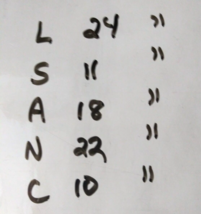 L 24 "
S 11 "
A 18 "
N 22 "
C 10 "